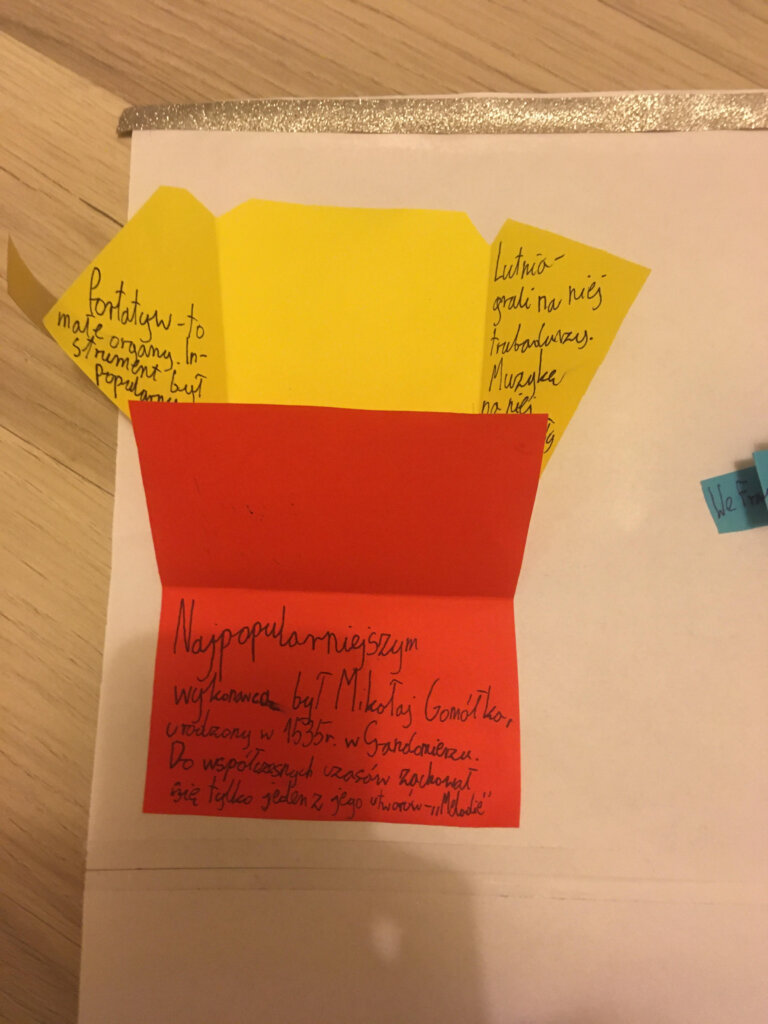 Portatyw - to
małe organy. In-
strument był
popularny
Lutnia -
grali na niej
trubadurzy.
Muzykę
na niej
We Fra
Najpopularniejszym
wykonawcą był Mikołaj Gomółka,
urodzony w 1535r. w Sandomierzu.
Do współczesnych czasów zachował
się tylko jeden z jego utworów - "Melodie"